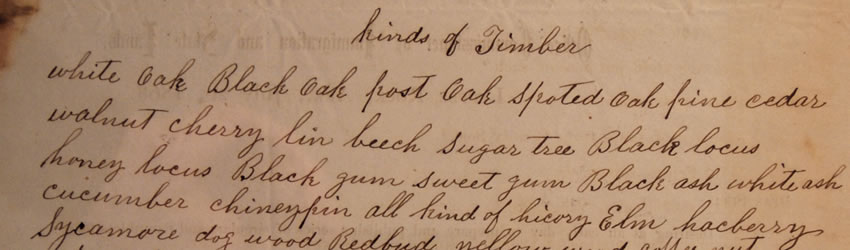 kinds of Timber
white Oak Black Oak post Oak spoted Oak pine cedar
walnut cherry lin beech sugar tree Black locus
honey locus Black gum sweet gum Black ash white ash
cucumber chineypin all kind of hicory Elm hacberry
Sycamore dog wood Redbud yellow wood